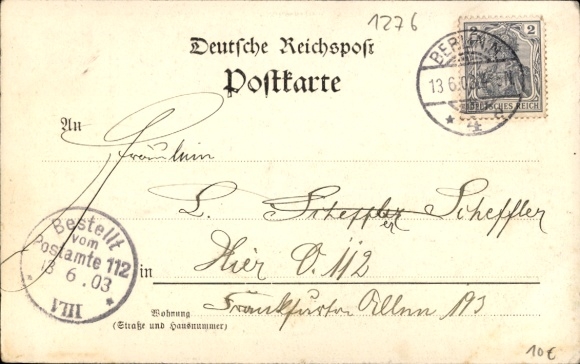 1276
Deutsche Reichspost
Postkarte
2 2
DEUTSCHES REICH
BERLIN N.
13 6.03
* 4 d
An
Fräulein
L. Scheffler Scheffler
in Hier O. 112
Frankfurter Allee 193
Wohnung
(Straße und Hausnummer)
Bestellt
vom
Postamte 112
13 6.03
10€